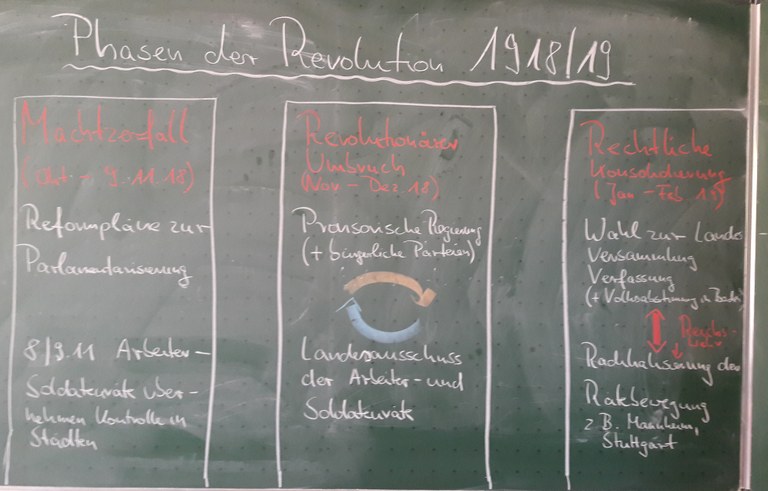 Phasen der Revolution 1918/19
Machtzerfall
(Okt. - 9.11.18)
Reformpläne zur
Parlamentarisierung
8/9.11 Arbeiter-
Soldatenräte über-
nehmen Kontrolle in
Städten
Revolutionärer
Umbruch
(Nov - Dez 18)
Provisorische Regierung
(+ bürgerliche Parteien)
Landesausschuss
der Arbeiter- und
Soldatenräte
Rechtliche
Konsolidierung
(Jan - Feb 19)
Wahl zur Landes
Versammlung
Verfassung
(+ Volksabstimmung in Baden)
Radikalisierung der
Rätebewegung
z.B. Mannheim,
Stuttgart